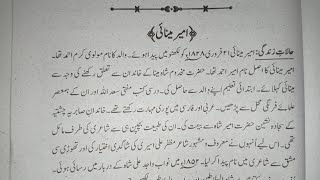 ﴿امیر مینائی﴾
حالاتِ زندگی: امیر مینائی ۲۱ فروری ۱۸۲۸ء کو لکھنؤ میں پیدا ہوئے۔ والد کا نام مولوی کرم احمد تھا۔
امیر مینائی کا اصل نام امیر احمد تھا۔ حضرت مخدوم شاہ مینا کے خاندان سے تعلق رکھنے کی وجہ سے
مینائی کہلائے۔ ابتدائی تعلیم اپنے والد سے حاصل کی۔ درسی کتب مفتی سعد اللہ اور ان کے ہمعصر
علمائے فرنگی محل سے پڑھیں۔ عربی اور فارسی میں پوری مہارت رکھتے تھے۔ خاندانِ صابریہ چشتیہ
کے سجادہ نشین حضرت امیر شاہ سے بیعت کی۔ ان کی طبیعت بچپن ہی سے شاعری کی طرف مائل
تھی۔ اس لیے انہوں نے معروف و مشہور شاعر مظفر علی اسیر کی شاگردی اختیار کی اور تھوڑی سی
مشق سے شاعری میں نام پیدا کر لیا۔ ۱۸۵۲ء میں نواب واجد علی شاہ کے دربار میں رسائی ہوئی۔